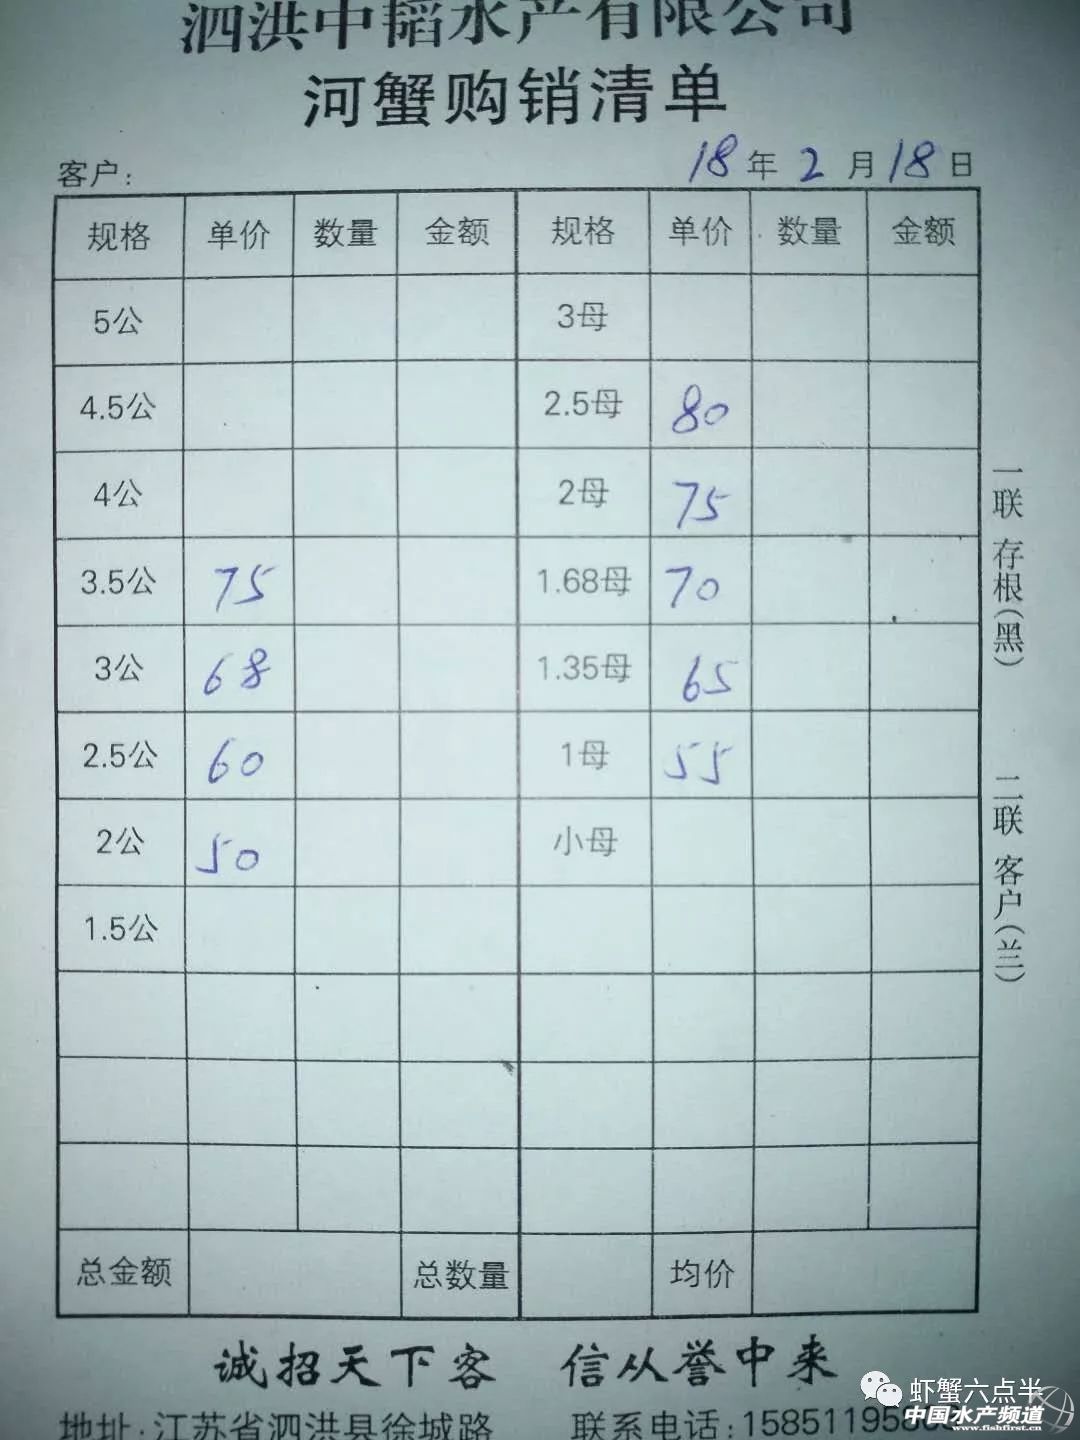 泗洪中韬水产有限公司
河蟹购销清单
客户: 18年2月18日
规格 单价 数量 金额 规格 单价 数量 金额
5公 3母
4.5公 2.5母 80
4公 2母 75
3.5公 75 1.68母 70
3公 68 1.35母 65
2.5公 60 1母 55
2公 50 小母
1.5公
总金额 总数量 均价
一联 存根(黑)
二联 客户(兰)
诚招天下客 信从誉中来
地址:江苏省泗洪县徐城路 联系电话:158511958
虾蟹六点半
中国水产频道
www.fishfirst.cn